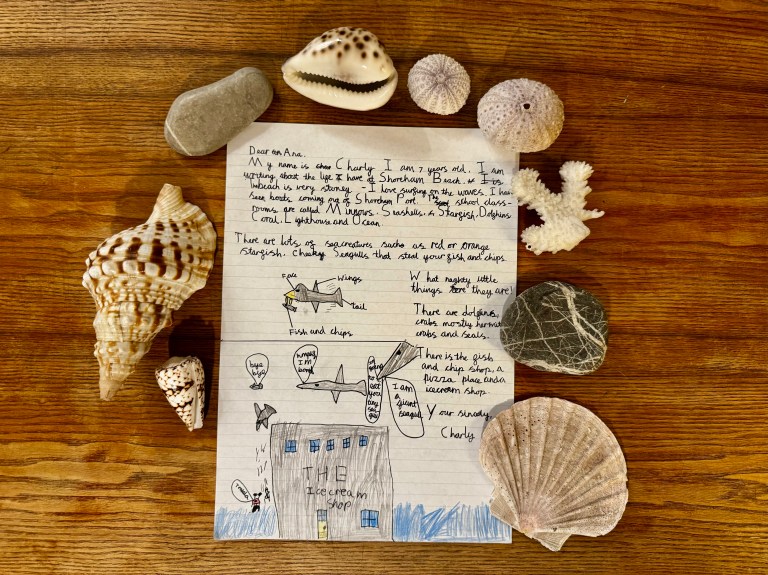 Dear an Ana.
My name is Charly I am 7 years old. I am
writing about the life I have of Shoreham Beach.
beach is very stoney - I love surfing on the waves. I
seen boats coming out of Shoreham Port. school class-
rooms are called Minnows, Seashells, Starfish, Dolphins
Coral, Lighthouse and Ocean.
There are lots of seacreatures suchs as red or orange
starfish. Cheeky Seagulls that steal your fish and chips.
Face
Wings
tail
Fish and chips
What naughty little
things they are!
There are dolphins,
crabs mostly hermat
crabs and seals.
There is the fish
and chip shop, a
pizza place and a
icecream shop.
Your sincerly
Charly
bye
bye
I'm
going
to
eat
you
any
I am
a
giant
seagull
THE
Icecream
shop